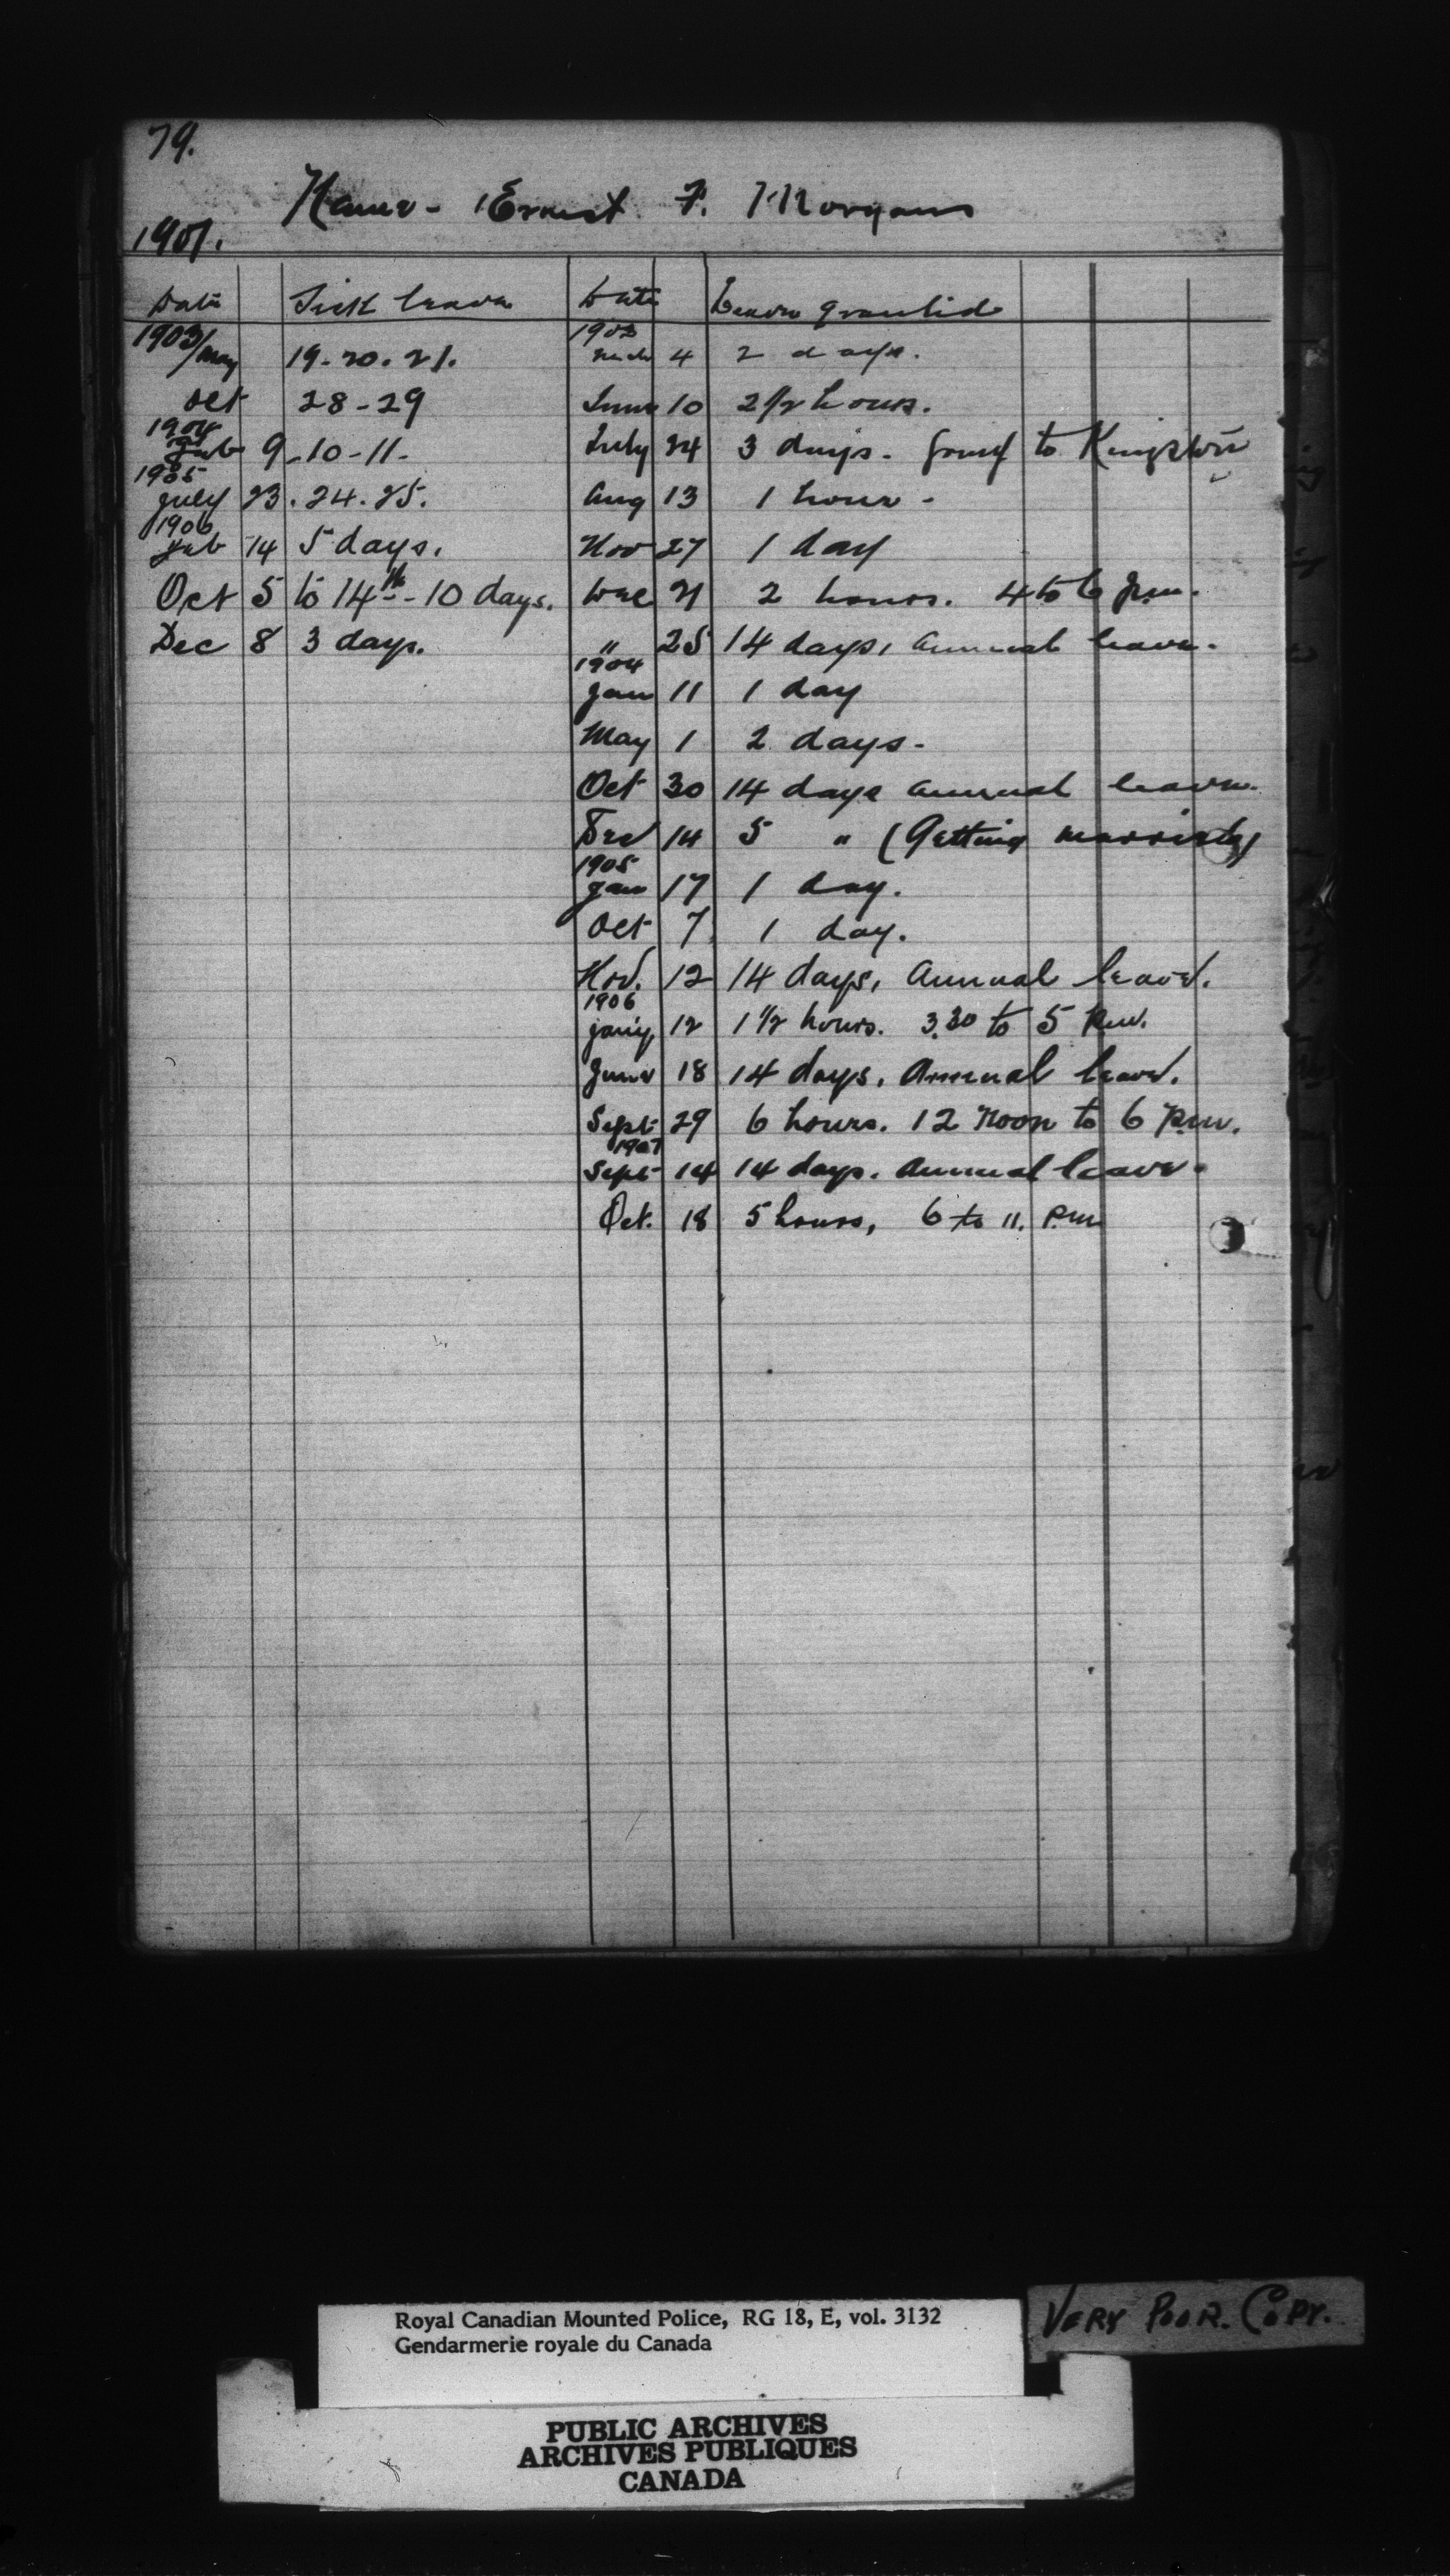 79.
Name - Ernest F. Morgans
1901.
Date Sick leave Date Leave granted
1903 1903
/May 19-20.21. 4 2 days.
Oct 28-29 June 10 2 1/2 hours.
1904
Feb 9-10-11- July 24 3 days. Going to Kingston
1905
July 23.24.25. Aug 13 1 hour -
1906
Feb 14 5 days. Nov 27 1 day
Oct 5 to 14th - 10 days. Dec 21 2 hours. 4 to 6 p.m.
Dec 8 3 days. " 25 14 days, annual leave.
1904
Jan 11 1 day
May 1 2 days -
Oct 30 14 days annual leave.
Dec 14 5 " (Getting married)
1905
Jan 17 1 day.
Oct 7 1 day.
Nov. 12 14 days, Annual leave.
1906
Jan'y 12 1 1/2 hours. 3.30 to 5 P.M.
June 18 14 days, Annual leave.
Sept 29 6 hours. 12 Noon to 6 P.M.
1907
Sept 14 14 days. Annual leave.
Oct. 18 5 hours, 6 to 11. P.M.
Royal Canadian Mounted Police, RG 18, E, vol. 3132
Gendarmerie royale du Canada
VERY POOR. COPY.
PUBLIC ARCHIVES
ARCHIVES PUBLIQUES
CANADA